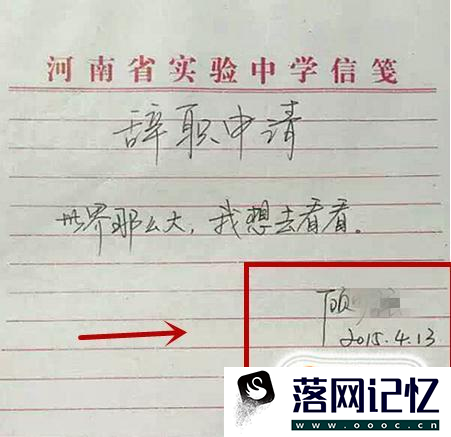 河南省实验中学信笺
辞职申请
世界那么大，我想去看看。
顾
2015.4.13
落网记忆
www.oooc.cn